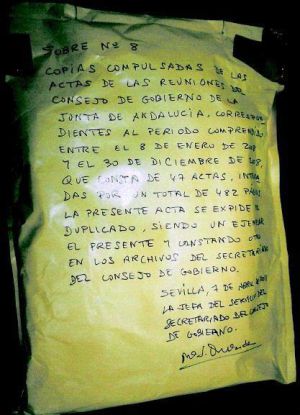 SOBRE Nº 8
COPIAS COMPULSADAS DE LAS
ACTAS DE LAS REUNIONES DEL
CONSEJO DE GOBIERNO DE LA
JUNTA DE ANDALUCIA, CORRESPON
DIENTES AL PERIODO COMPRENDI
ENTRE EL 8 DE ENERO DE
Y EL 30 DE DICIEMBRE DE
QUE CONSTA DE 47 ACTAS, INTEGRA
DAS POR UN TOTAL DE 482
LA PRESENTE ACTA SE EXPIDE
DUPLICADO, SIENDO UN EJEMPLAR
EL PRESENTE Y CONSTANDO OTRO
EN LOS ARCHIVOS DEL SECRETARIADO
DEL CONSEJO DE GOBIERNO.
SEVILLA, 7 DE ABRIL
LA JEFA DEL
SECRETARIADO DEL CONSEJO
DE GOBIERNO.